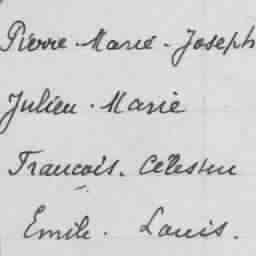 Pierre-Marie-Joseph
Julien-Marie
François-Célestin
Emile-Louis.